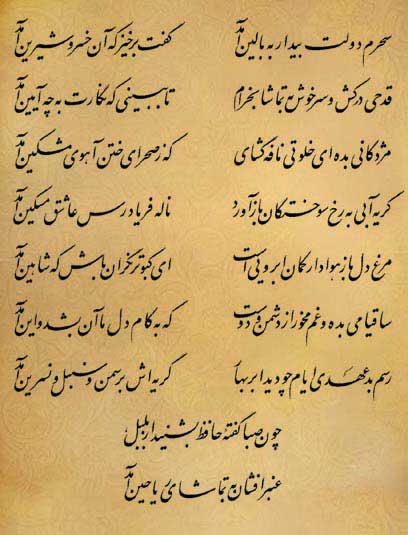 سحرم دولت بیدار به بالین آمد گفت برخیز که آن خسرو شیرین آمد
قدحی درکش و سرخوش به تماشا بخرام تا ببینی که نگارت به چه آیین آمد
مژدگانی بده ای خلوتی نافه گشای که ز صحرای ختن آهوی مشکین آمد
گریه آبی به رخ سوختگان باز آورد ناله فریادرس عاشق مسکین آمد
مرغ دل باز هوادار کمان ابرویی است ای کبوتر نگران باش که شاهین آمد
ساقیا می بده و غم مخور از دشمن و دوست که به کام دل ما آن بشد و این آمد
رسم بدعهدی ایام چو دید ابر بهار گریه اش بر سمن و سنبل و نسرین آمد
چون صبا گفتهٔ حافظ بشنید از بلبل
عنبر افشان به تماشای ریاحین آمد